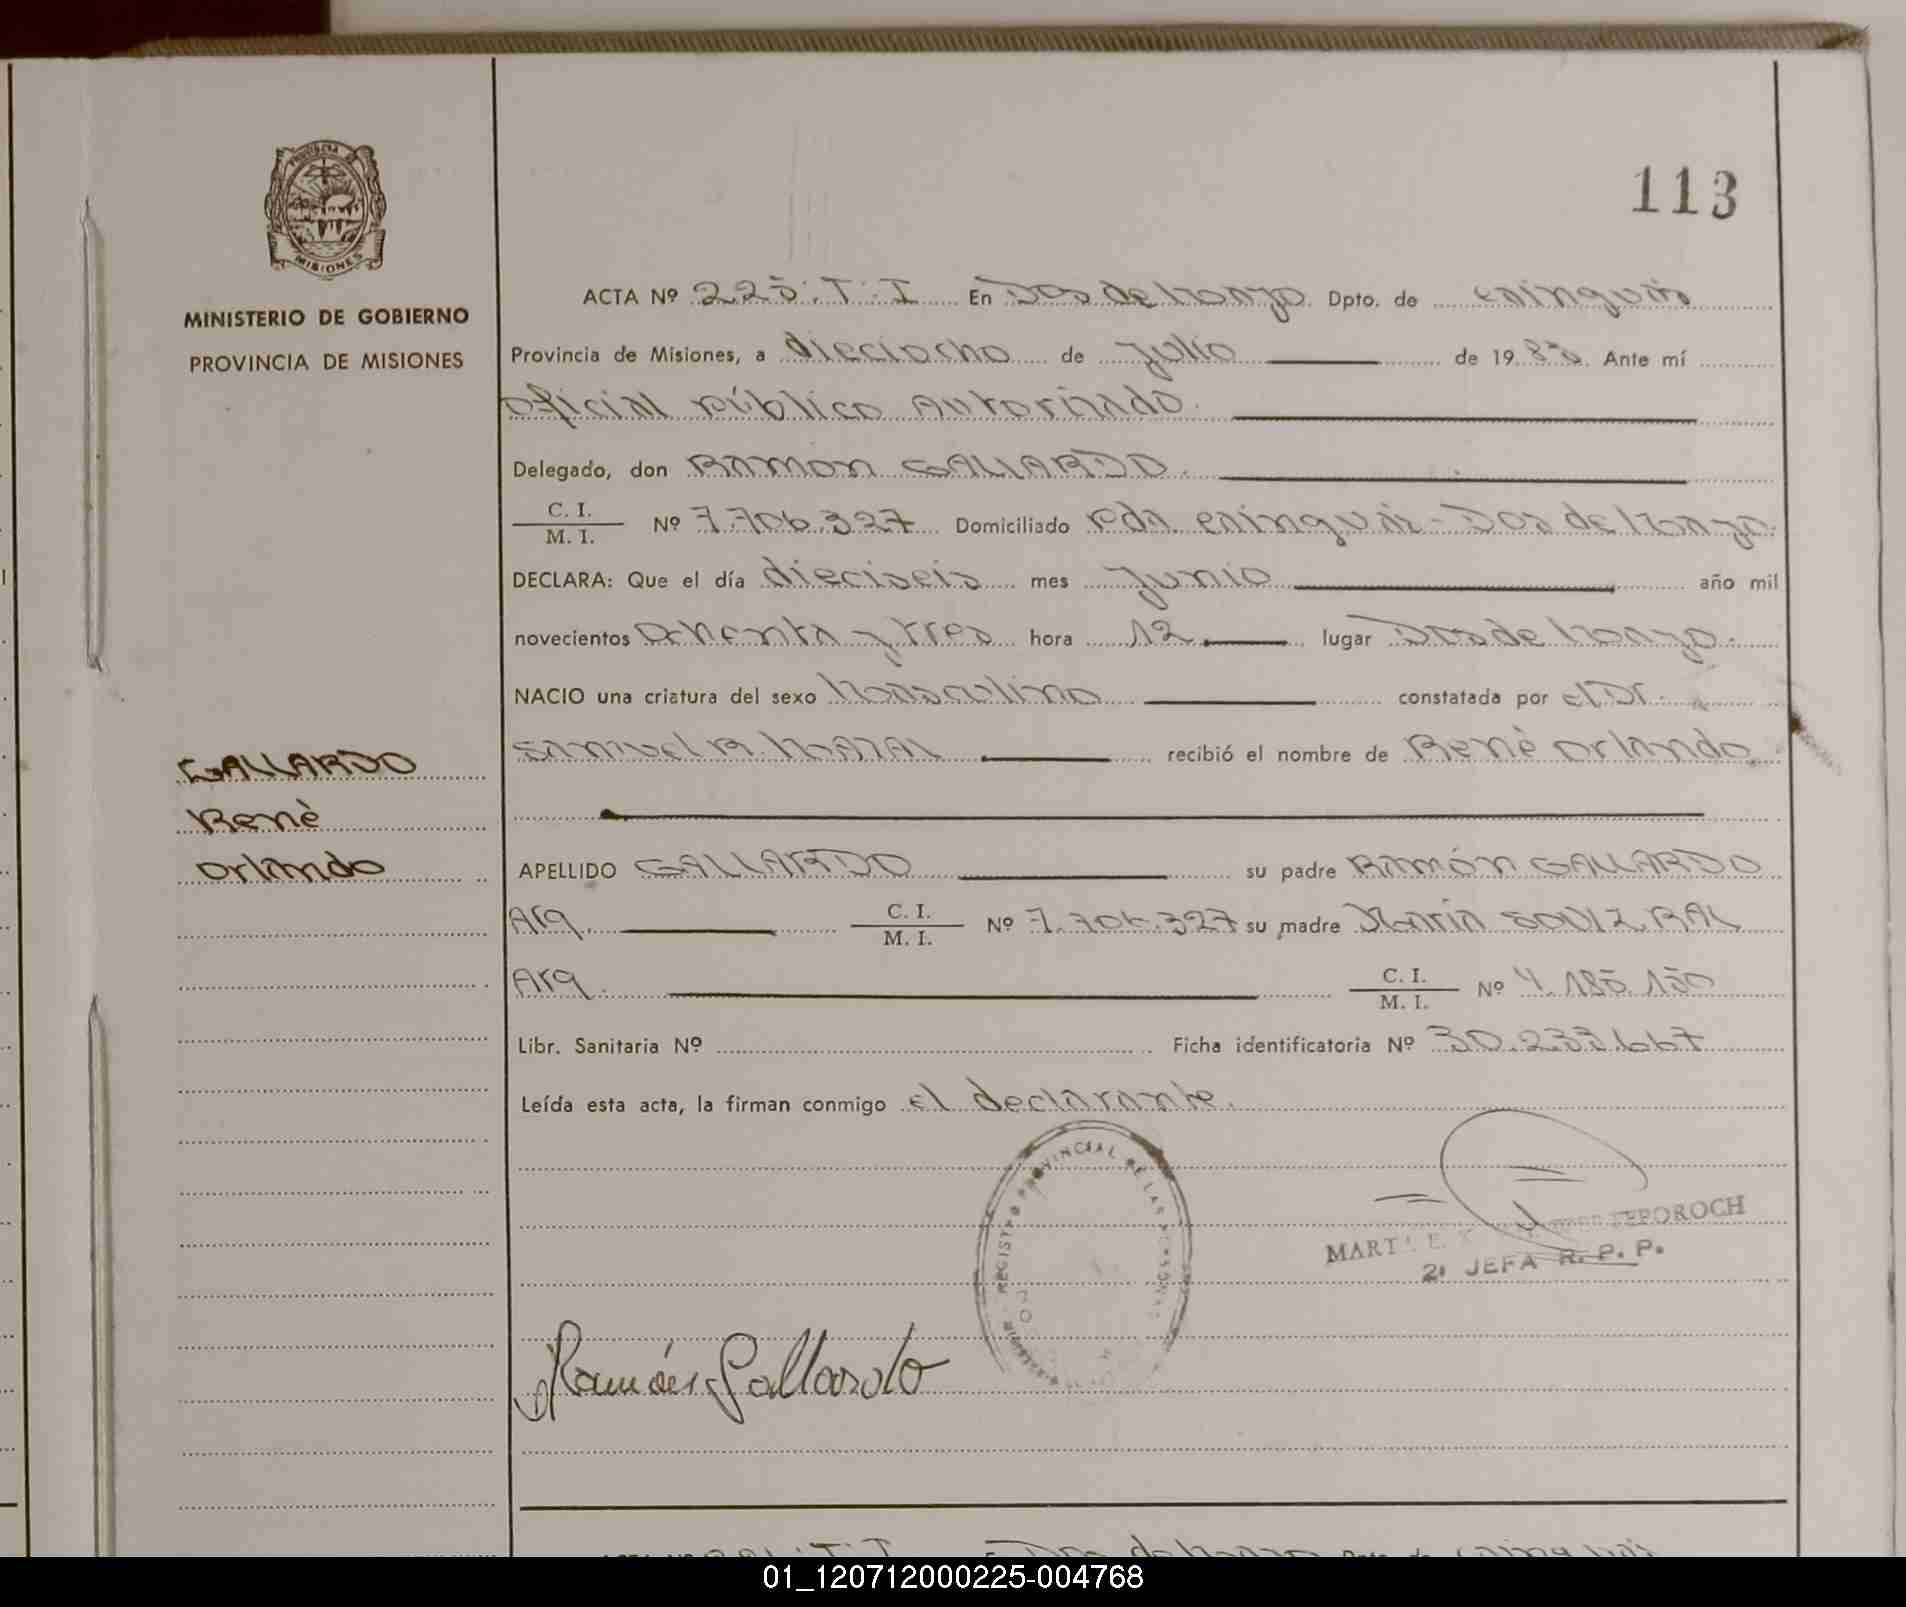 113
PROVINCIA DE
MISIONES
MINISTERIO DE GOBIERNO
PROVINCIA DE MISIONES
ACTA Nº 225.T.I En Dos de Mayo Dpto. de Cainguás
Provincia de Misiones, a dieciocho de Julio de 1983. Ante mí
Oficial Público Autorizado.
Delegado, don RAMON GALLARDO.
C. I.
M. I. Nº 7.706.327 Domiciliado Pdn. Cainguás - Dos de Mayo.
DECLARA: Que el día dieciseis mes Junio año mil
novecientos Ochenta y tres hora 12 lugar Dos de Mayo.
NACIO una criatura del sexo Masculino constatada por el Dr.
Samuel R. recibió el nombre de Renè Orlando
GALLARDO
Renè
Orlando
APELLIDO GALLARDO su padre RAMÓN GALLARDO
Arg. C. I.
M. I. Nº 7.706.327 su madre María
Arg. C. I.
M. I. Nº 4.185.150
Libr. Sanitaria Nº Ficha identificatoria Nº 30.233.667
Leída esta acta, la firman conmigo el declarante.
REGISTRO PROVINCIAL DE LAS PERSONAS
MART E. TEPOROCH
2ª JEFA R. P. P.
Ramón Gallardo
01_120712000225-004768